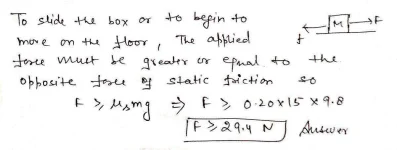 To slide the box or to begin to
move on the floor, The applied
force must be greater or equal to the
opposite force of static friction so
F ≥ μsmg ⇒ F ≥ 0.20×15 × 9.8
F ≥ 29.4 N Answer
M → F
f